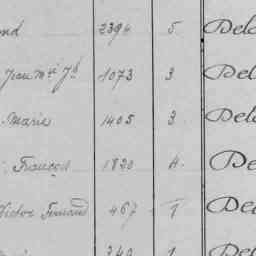 ond 2394 5 Del
Jean Mie Jh 1073 3 Del
Marie 1405 3 Del
François 1820 4 De
Victor Fernand 467 1 De
340 1 Del